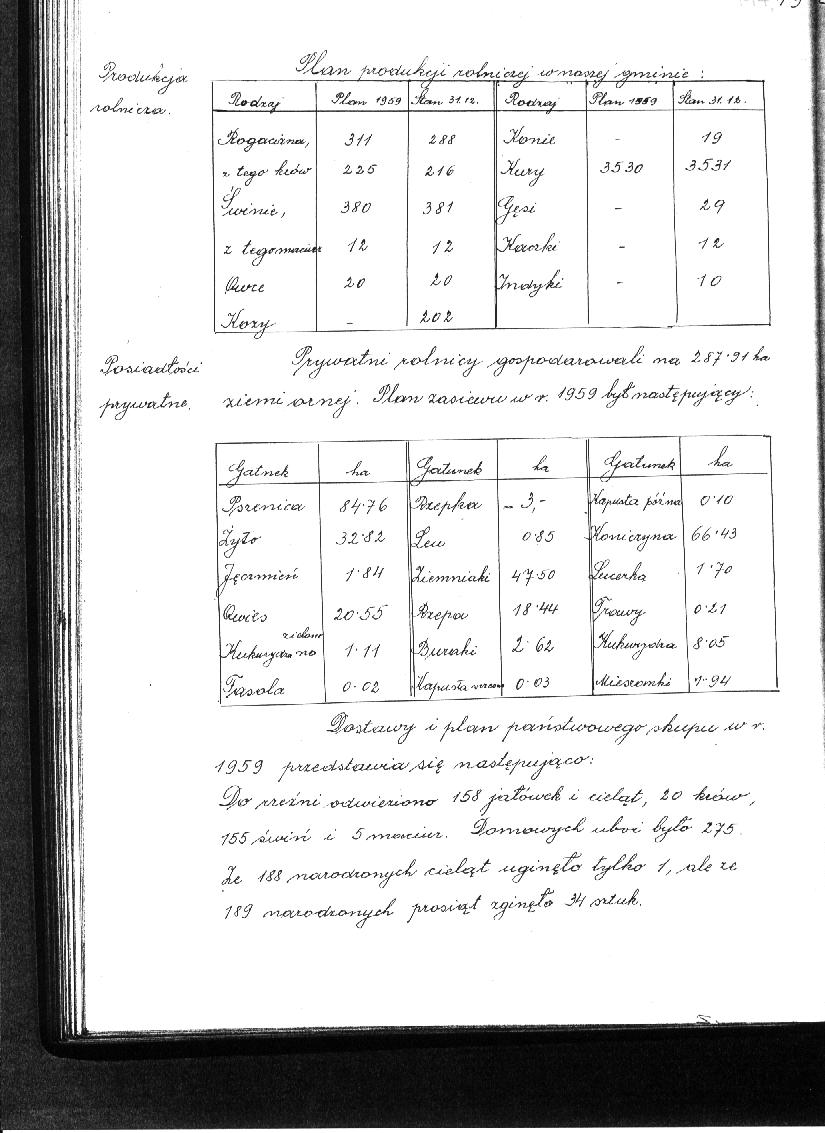 Produkcja
rolnicza.
Plan produkcji rolniczej w naszej gminie:
Rodzaj Plan 1959 Stan 31.12. Rodzaj Plan 1959 Stan 31.12.
Rogacizna, 311 288 Konie - 19
z tego krów 225 216 Kury 3530 3531
Świnie, 380 381 Gęsi - 29
z tego macior 12 12 Kaczki - 12
Owce 20 20 Indyki - 10
Kozy - 202
Posiadłości
prywatne.
Prywatni rolnicy gospodarowali na 287·91 ha
ziemi ornej. Plan zasiewu w r. 1959 był następujący:
Gatnek ha Gatunek ha Gatunek ha
Pszenica 84·76 Rzepka - 3,- Kapusta późna 0·10
Żyto 32·82 Len 0·85 Koniczyna 66·43
Jęczmień 1·84 Ziemniaki 47·50 Lucerka 1·70
Owies 20·55 Rzepa 18·44 Trawy 0·21
Kukurydza na zielono 1·11 Buraki 2·62 Kukurydza 8·05
Fasola 0·02 Kapusta wczesna 0·03 Mieszanki 7·94
Dostawy i plan państwowego skupu w r.
1959 przedstawia się następująco:
Do rzeźni odwieziono 158 jałówek i cieląt, 20 krów,
155 świń i 5 macior. Domowych uboi było 275.
Ze 188 narodzonych cieląt uginęło tylko 1, ale ze
189 narodzonych prosiąt zginęło 34 sztuk.